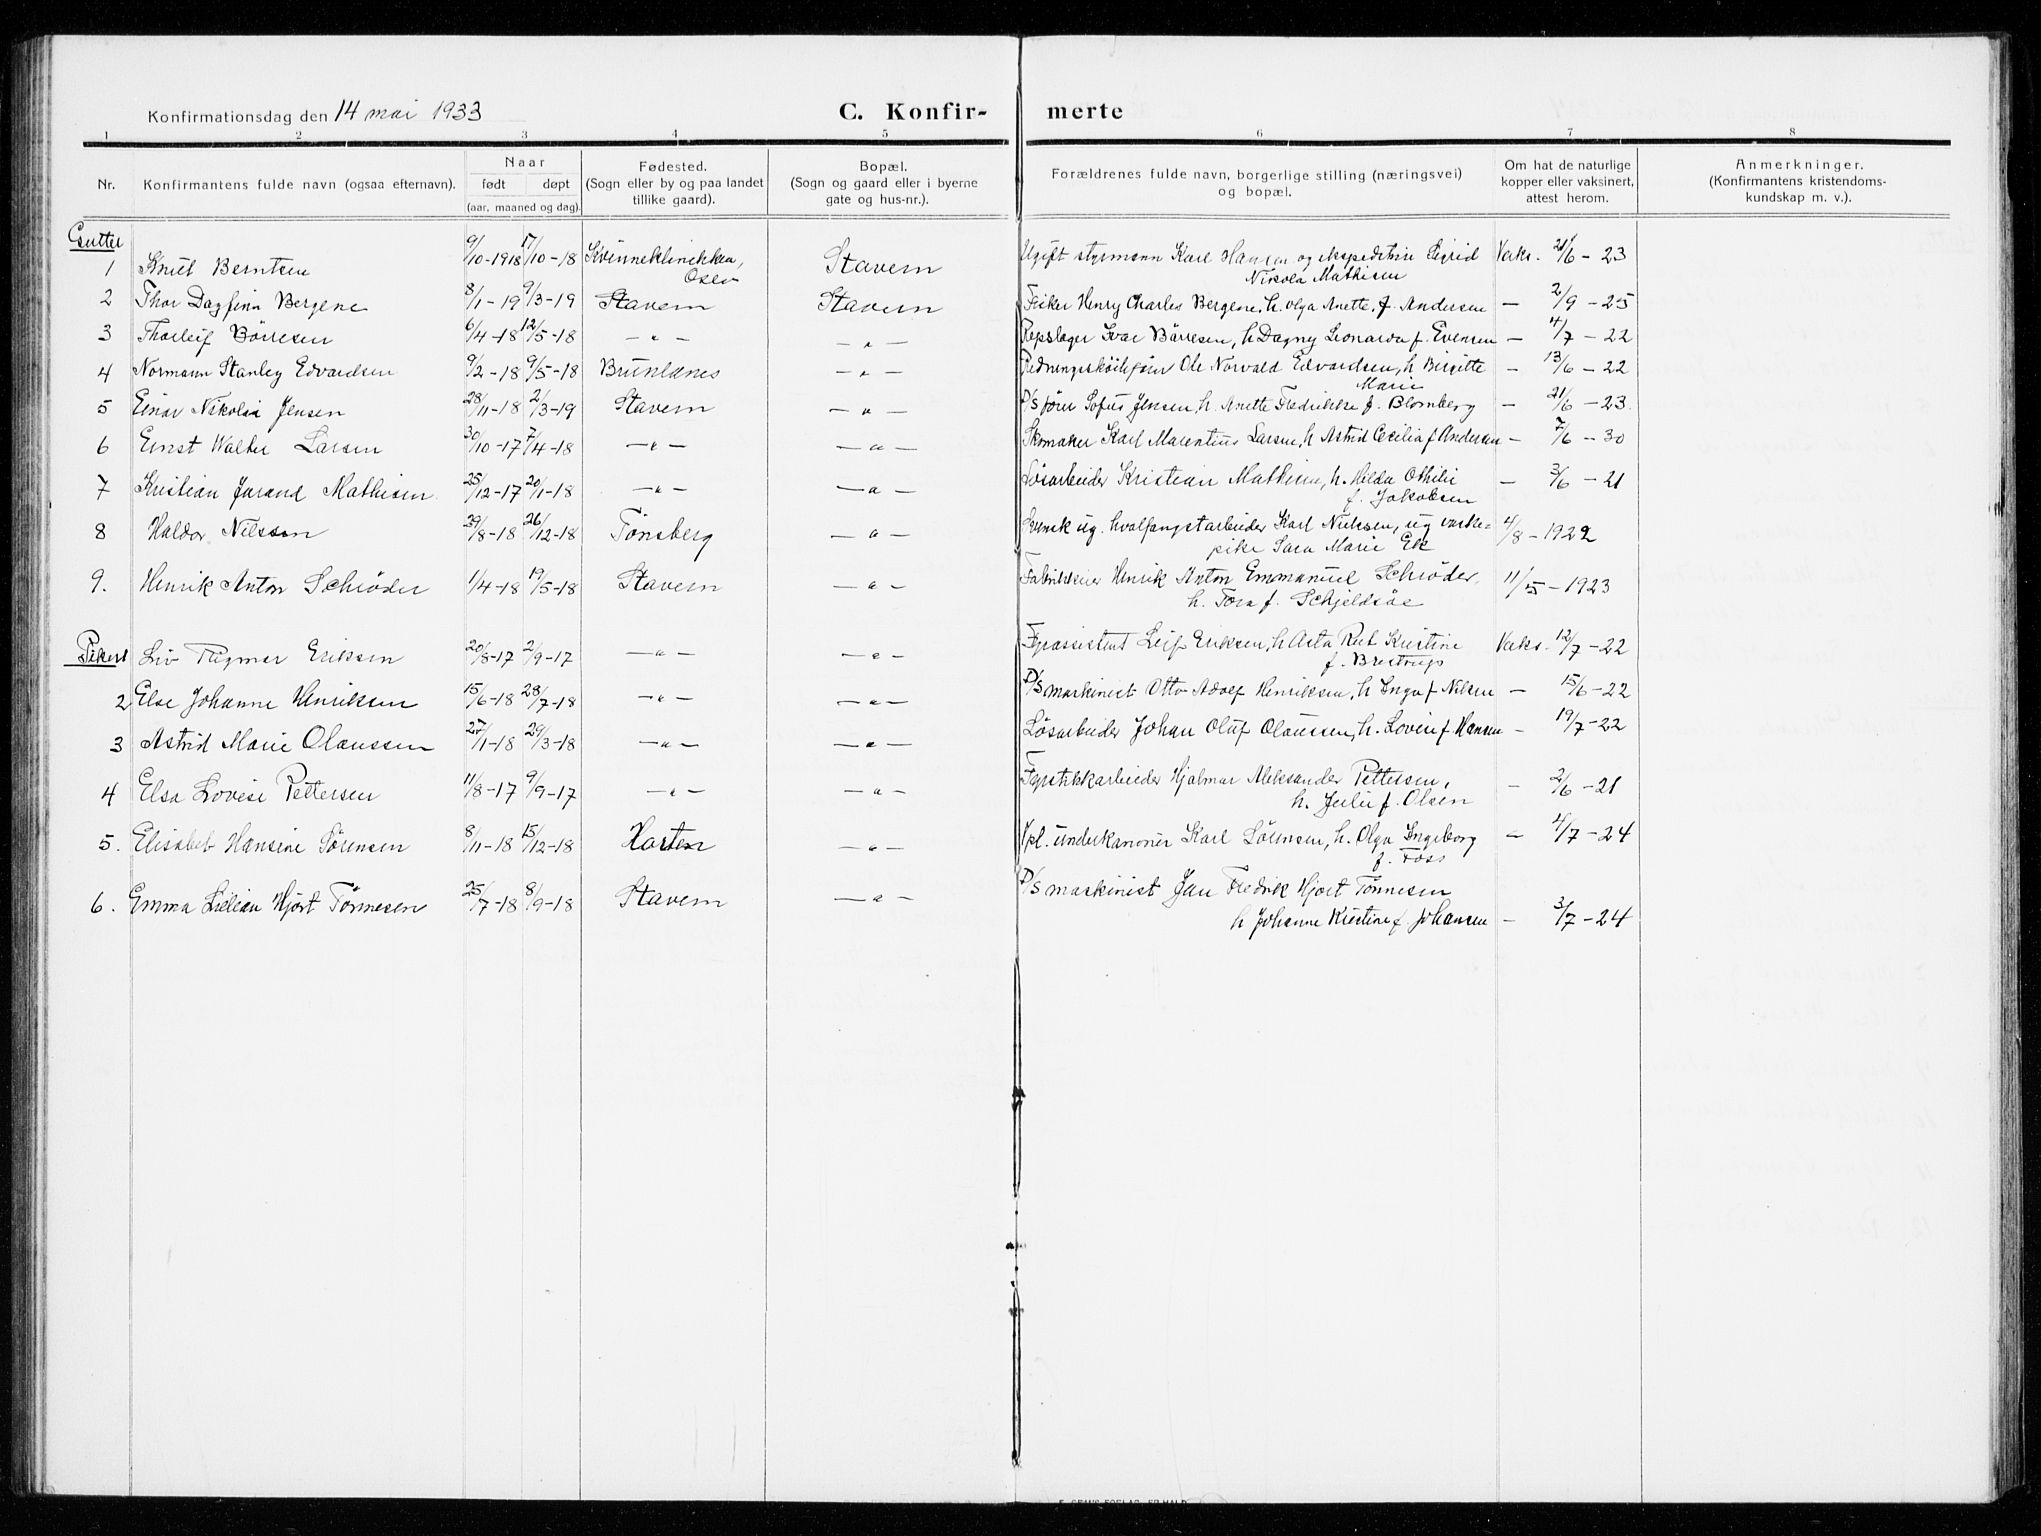 Konfirmationsdag den 14 mai 1933 C. Konfir- merte
1 2 3 4 5 6 7 8
Nr. Konfirmantens fulde navn (ogsaa efternavn). Naar født døpt (aar, maaned og dag). Fødested. (Sogn eller by og paa landet tillike gaard). Bopæl. (Sogn og gaard eller i byerne gate og hus-nr.). Forældrenes fulde navn, borgerlige stilling (næringsvei) og bopæl. Om hat de naturlige kopper eller vaksinert, attest herom. Anmerkninger. (Konfirmantens kristendoms- kundskap m. v.).
Gutter
1 Knut Berntsen 9/10-1918 17/10-18 Kvinneklinikken, Oslo Stavern Ugift styrmann Karl Hansen og ekspeditrise Sigrid Nikola Mathisen Vaks. 21/6-23
2 Thor Dagfinn Bergene 8/1-19 9/3-19 Stavern Stavern Fisker Henry Charles Bergene, h. Olga Anette, f. Andersen — 2/9-25
3 Thorleif Börresen 6/4-18 12/5-18 — " — — " — Repslager Ivar Börresen, h Dagny Leonarda f. Evensen — 4/7-22
4 Normann Stanley Edvardsen 9/2-18 9/5-18 Brunlanes — " — Redningsskøitefører Ole Norvald Edvardsen, h Birgitte Marie — 13/6-22
5 Einar Nikolai Jensen 28/11-18 2/3-19 Stavern — " — D/S fører Sofus Jensen, h. Anette Fredrikke f. Blomberg — 21/6-23.
6 Ernst Walter Larsen 30/10-17 7/4-18 — " — — " — Skomaker Karl Marentius Larsen, h Astrid Cecilia f Andersen — 7/6-30
7 Kristian Jarand Mathisen 25/12-17 20/1-18 — " — — " — Løsarbeider Kristian Mathisen, h. Hilda Othilie f. Jakobsen — 3/6-21
8 Haldor Nilssen 29/8-18 26/12-18 Tönsberg — " — Svensk ug. hvalfangstarbeider Karl Nilsen, ug vaske= pike Sara Marie Ek 4/8-1922
9. Henrik Anton Schrøder 1/4-18 19/5-18 Stavern — " — Fabrikkeier Henrik Anton Emmanuel Schrøder, h. Tora f. Schjeldsöe 11/5-1923
Piker 1 Liv Dagmar Eriksen 20/8-17 2/9-17 — " — — " — Fyrassistent Leif Eriksen, h Asta Rut Kristine f. Brestrup Vaks. 12/7-22
2 Else Johanne Henriksen 15/6-18 28/7-18 — " — — " — D/S maskinist Otto Adolf Henriksen, h Inga f Nilsen — 15/6-22
3 Astrid Marie Olaussen 27/1-18 29/3-18 — " — — " — Løsarbeider Johan Oluf Olaussen, h. Lovise f Hansen — 19/7-22
4 Elsa Lovise Pettersen 11/8-17 9/9-17 — " — — " — Fyrstikkarbeider Hjalmar Aleksander Pettersen, h. Julie f. Olsen — 2/6-21
5. Elisabet Hansine Sørensen 8/11-18 15/12-18 Horten — " — Vpl. underkanoner Karl Sörensen, h. Olga Ingeborg f. Foss — 4/7-24
6. Emma Lilian Hjort Tönnesen 25/7-18 8/9-18 Stavern — " — D/S maskinist Jan Fredrik Hjort Tönnesen h Johanne Kristine f. Johansen — 3/7-24